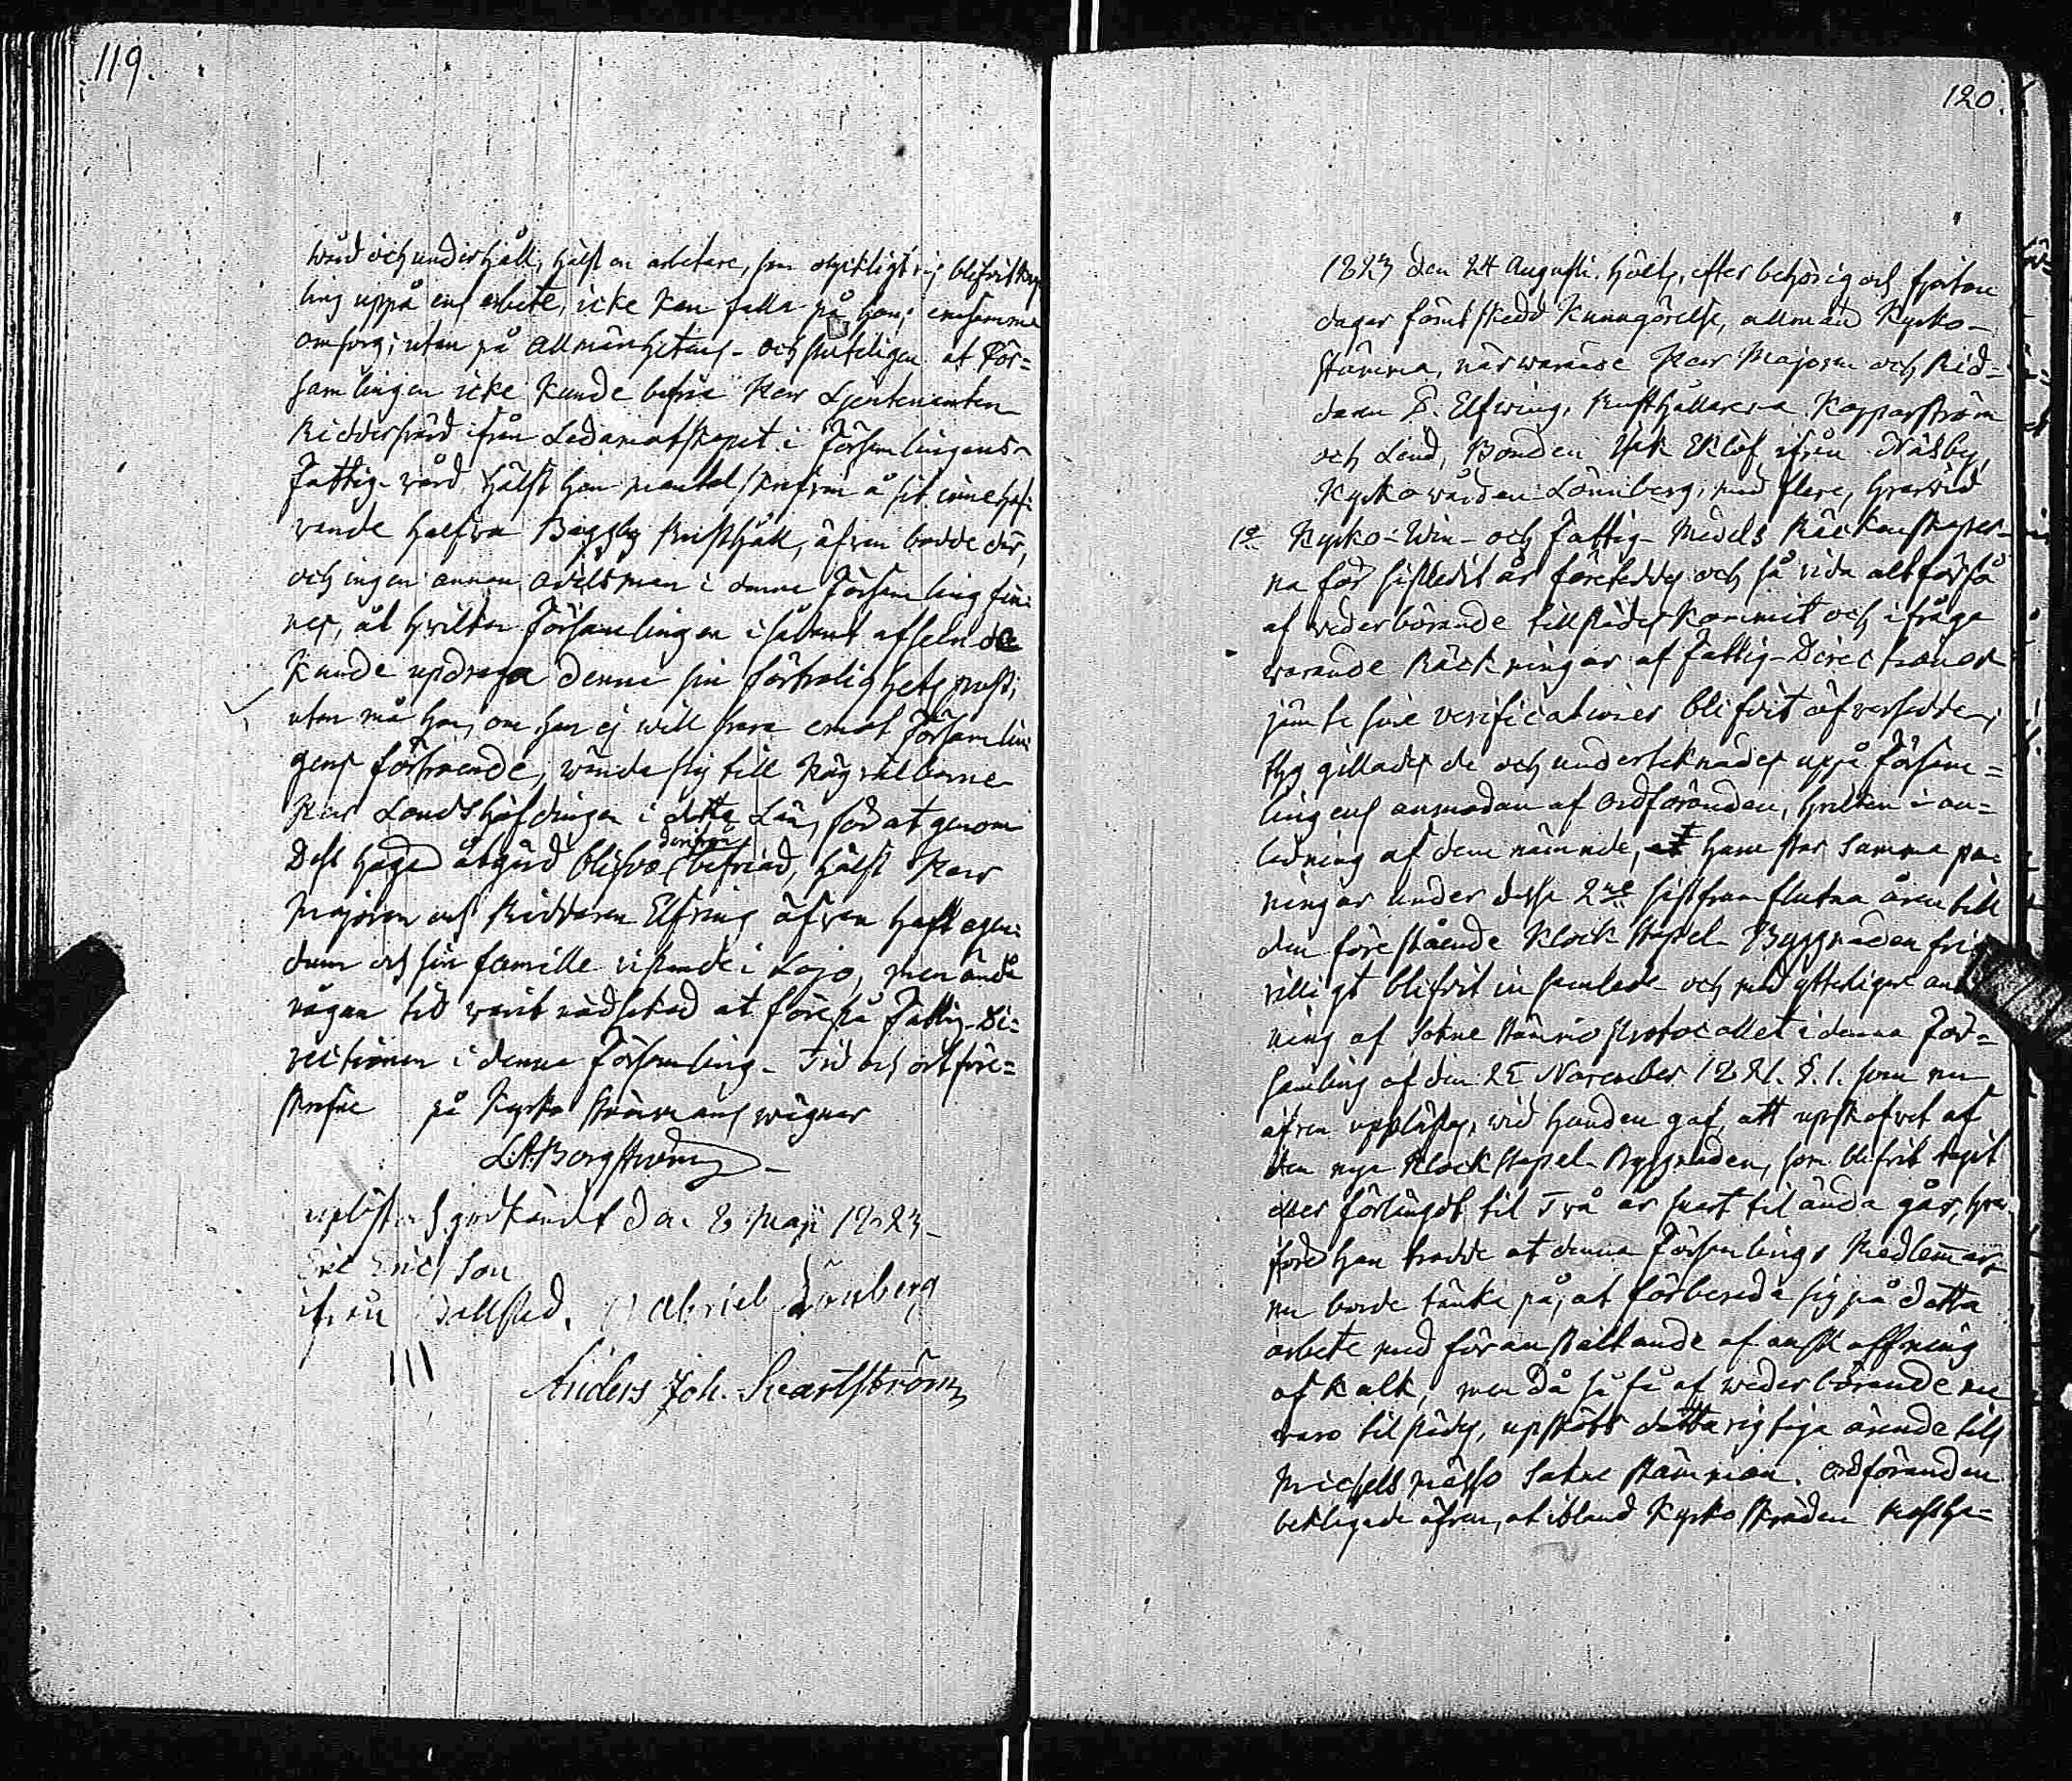 119.
wård och underhåll, hälst en arbetare, som olyckligtvis blifvit
ling uppå ens arbete, icke kan falla på hans ensamma
omsorg, utan på Allmänhetens - och sluteligen at För=
samlingen icke kunde befria Herr Lieutenanten
Riddersvärd ifrån Ledamotskapet i Församlingens
Fattig-vård, hälst han mantalskrifven å sit innehaf=
vande halfva Baggby Rusthåll, äfven bodde der,
och ingen annan adelsman i denna Församling fin=
nes, åt hvilken Församlingen i sådant afseende
kunde updraga denna sin förtrolighets post,
utan må han, om han ej will svara emot Församlin=
gens förtroende, wända sig till Högvälborne
Herr Landshöfdingen i detta Län, för at genom
Dess höga åtgärd blifva derifrån befriad, hälst Herr
Majoren och Riddaren Elfving äfven haft egen=
dom och sin famille vistande i Lojo, men ändå
någon tid varit nödsakad at förestå Fattig-Di=
rectionen i denna Församling. Tid och ort före=
skrefne på Kyrko stämmans wägnar
L.A. Borgström
upläst och godkändt den 8 Maji 1823.
Eric Ericsson
ifrån Gabriel Lönberg
Anders Joh. Svartström
120.
1823 den 24 Augusti, hölts, efter behörig och fjorton
dagar förut skedd kunngörelse, allmän Kyrko-
stämma, närwarande Herr Majoren och Rid=
daren Elfwing, Rusthållarena Kopparström
och Lind, Bonden Isak Eklöf ifrån Näsby,
Kyrkowärden Lönnberg, med flere, hvarwid
1o Kyrko- Win- och Fattig-Medels Räckenskaper-
na för sistledit år företeddes och så vida alt för få
af vederbörande tillstädes kommit och ifråga
warande Räckningar af Fattig-Directionen
jämte sine verificationer blifvit öfversedde,
så gillades de och underteknades uppå Försam=
lingens anmodan af Ordföranden, hvilken i an=
ledning af dem nämnde, at huru stor summa pe=
ningar under desse 2ne sistframflutna åren till
den förestående Klockstapel-Byggnaden fri
villigt blifvit insamlade och med ytterligare
ning af Sokne stämmo Protocollet i denna För=
samling af den 25 November 1821. §.1. som nu
äfven upplästes, wid handen gaf, att upskofvet af
den nya Klockstapel-Byggnaden, som blifvit tagit
eller förlängdt til Två år snart til ända går, hvar
före han trodde at denna Församlings Medlemmar
nu borde tänka på, at förbereda sig på detta
arbete med föranstaltande af anskaffning
af kalk, men då så få af wederbörande nu
woro tilstädes, upsköts detta wigtiga ärende till
Michelsmässo Sokne stämman. Ordföranden
beklagade äfven, at ibland Kyrko Råden